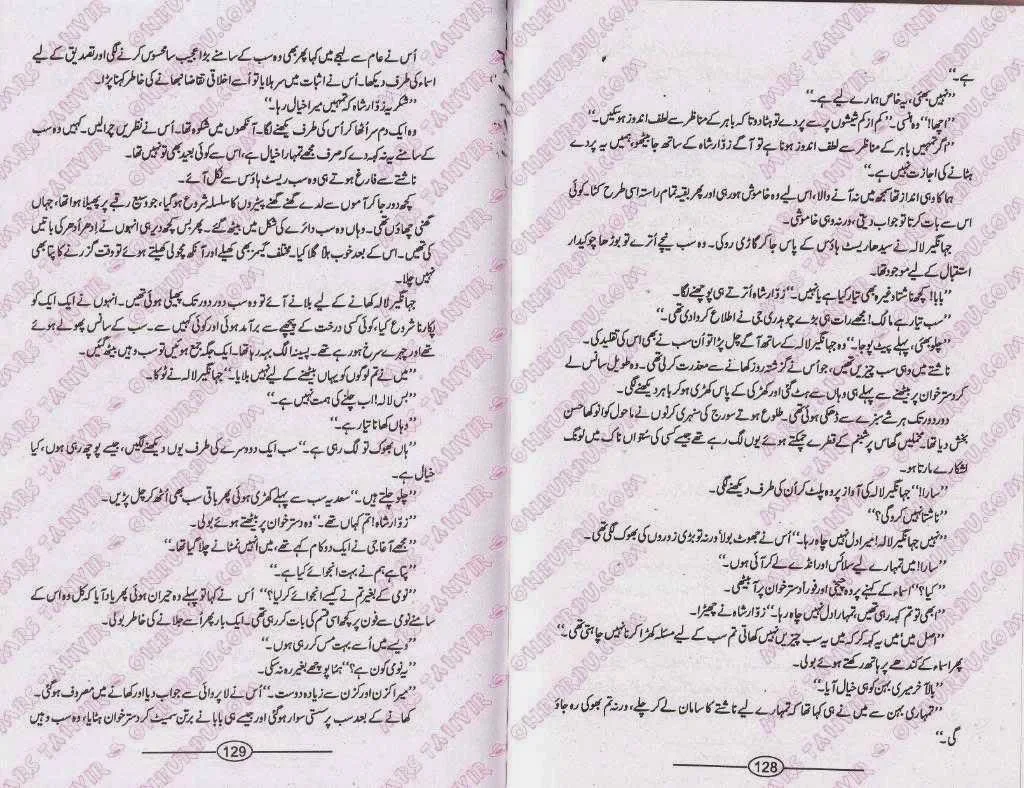 ہے۔‘‘
’’نہیں بھئی، یہ خاص ہمارے لیے ہے۔‘‘
’’اچھا!‘‘ وہ ہنسی۔ ’’کم از کم شیشوں پر سے پردے تو ہٹا دو تاکہ باہر کے مناظر سے لطف اندوز ہو سکیں۔‘‘
’’اگر تمہیں باہر کے مناظر سے لطف اندوز ہونا ہے تو آگے زوّار شاہ کے ساتھ جا بیٹھو، ہمیں یہ پردے
ہٹانے کی اجازت نہیں ہے۔‘‘
ہما کا وہی انداز تھا سمجھ میں نہ آنے والا، اس لیے وہ خاموش ہو رہی اور پھر بقیہ تمام راستہ اسی طرح کٹا۔ کوئی
اس سے بات کرتا تو جواب دیتی، ورنہ وہی خاموشی۔
جہانگیر لالہ نے سیدھا ریسٹ ہاؤس کے پاس جا کر گاڑی روکی۔ وہ سب نیچے اُترے تو بوڑھا چوکیدار
استقبال کے لیے موجود تھا۔
’’بابا! کچھ ناشتا وغیرہ بھی تیار کیا ہے یا نہیں۔‘‘ زوّار شاہ اُترتے ہی پوچھنے لگا۔
’’سب تیار ہے مالک! مجھے رات ہی بڑے چوہدری جی نے اطلاع کروا دی تھی۔‘‘
’’چلو بھئی، پہلے پیٹ پوجا۔‘‘ وہ جہانگیر لالہ کے ساتھ آگے چل پڑا تو اُن سب نے بھی اس کی تقلید کی۔
ناشتے میں وہی سب چیزیں تھیں، جو اُس نے گزشتہ روز کھانے سے معذرت کر لی تھی۔ وہ طویل سانس لے
کر دسترخوان پر بیٹھنے سے پہلے ہی وہاں سے ہٹ گئی اور کھڑکی کے پاس کھڑی ہو کر باہر دیکھنے لگی۔
دور دور تک ہر شے سبزے سے ڈھکی ہوئی تھی۔ طلوع ہوتے سورج کی سنہری کرنوں نے ماحول کو انوکھا حسن
بخش دیا تھا۔ مخملیں گھاس پر شبنم کے قطرے چمکتے ہوئے یوں لگ رہے تھے جیسے کسی کی ستواں ناک میں لونگ
لشکارے مارتا ہو۔
’’سارا!‘‘ جہانگیر لالہ کی آواز پر وہ پلٹ کر اُن کی طرف دیکھنے لگی۔
’’ناشتا نہیں کرو گی؟‘‘
’’نہیں جہانگیر لالہ! میرا دل نہیں چاہ رہا۔‘‘ اُس نے جھوٹ بولا ورنہ تو بڑی زوروں کی بھوک لگی تھی۔
’’سارا! میں تمہارے لیے سلائس اور انڈے لے کر آئی ہوں۔‘‘
’’کیا؟‘‘ اسماء کے کہنے پر وہ چیخی اور فوراً دسترخوان پر آ بیٹھی۔
’’ابھی تو تم کہہ رہی تھیں، تمہارا دل نہیں چاہ رہا۔‘‘ زوّار شاہ نے چھیڑا۔
’’اصل میں میں یہ کہہ کر کہ میں یہ سب چیزیں نہیں کھاتی تم سب کے لیے مسئلہ کھڑا کرنا نہیں چاہتی تھی۔‘‘
پھر اسماء کے کندھے پر ہاتھ رکھتے ہوئے بولی۔
’’بالآخر میری بہن کو ہی خیال آیا۔‘‘
’’تمہاری بہن سے میں نے ہی کہا تھا کہ تمہارے لیے ناشتے کا سامان لے کر چلے، ورنہ تم بھوکی رہ جاؤ
گی۔‘‘
128
اُس نے عام سے لہجے میں کہا پھر بھی وہ سب کے سامنے بڑا عجیب سا محسوس کرنے لگی اور تصدیق کے لیے
اسماء کی طرف دیکھا۔ اُس نے اثبات میں سر ہلایا تو اُسے اخلاقی تقاضا نبھانے کی خاطر کہنا پڑا۔
’’شکریہ زوّار شاہ کہ تمہیں میرا خیال رہا۔‘‘
وہ ایک دم سر اُٹھا کر اُس کی طرف دیکھنے لگا۔ آنکھوں میں شکوہ تھا۔ اُس نے نظریں چرا لیں۔ کہیں وہ سب
کے سامنے یہ نہ کہہ دے کہ صرف مجھے تمہارا خیال ہے، اس سے کوئی بعید بھی تو نہیں تھا۔
ناشتے سے فارغ ہوتے ہی وہ سب ریسٹ ہاؤس سے نکل آئے۔
کچھ دور جا کر آموں سے لدے گھنے گھنے پیڑوں کا سلسلہ شروع ہو گیا، جو وسیع رقبے پر پھیلا ہوا تھا، جہاں
گھنی چھاؤں تھی۔ وہاں وہ سب دائرے کی شکل میں بیٹھ گئے۔ پھر بس کچھ دیر ہی انہوں نے اِدھر اُدھر کی باتیں
کی تھیں۔ اس کے بعد خوب ہلّا گلّا کیا۔ مختلف گیمز بھی کھیلے اور آنکھ مچولی کھیلتے ہوئے تو وقت گزرنے کا پتا بھی
نہیں چلا۔
جہانگیر لالہ کھانے کے لیے بلانے آئے تو وہ سب دور دور تک پھیلی ہوئی تھیں۔ انہوں نے ایک ایک کو
پکارنا شروع کیا، کوئی کسی درخت کے پیچھے سے برآمد ہوئی اور کوئی کہیں سے۔ سب کے سانس پھولے ہوئے
تھے اور چہرے سرخ ہو رہے تھے۔ پسینا الگ بہہ رہا تھا۔ ایک جگہ جمع ہوئیں تو سب وہیں بیٹھ گئیں۔
’’میں نے تم لوگوں کو یہاں بیٹھنے کے لیے نہیں بلایا۔‘‘ جہانگیر لالہ نے ٹوکا۔
’’بس لالہ! اب چلنے کی ہمت نہیں ہے۔‘‘
’’وہاں کھانا تیار ہے۔‘‘
’’ہاں بھوک تو لگ رہی ہے۔‘‘ سب ایک دوسرے کی طرف یوں دیکھنے لگیں، جیسے پوچھ رہی ہوں، کیا
خیال ہے۔
’’چلو چلتے ہیں۔‘‘ سعدیہ سب سے پہلے کھڑی ہوئی پھر باقی سب بھی اُٹھ کر چل پڑیں۔
’’زوّار شاہ! تم کہاں تھے۔‘‘ وہ دسترخوان پر بیٹھتے ہوئے بولی۔
’’مجھے آغا جی نے ایک دو کام کہے تھے، میں انہیں نمٹانے چلا گیا تھا۔‘‘
’’پتا ہے ہم نے بہت انجوائے کیا ہے۔‘‘
’’نومی کے بغیر تم نے کیسے انجوائے کر لیا؟‘‘ اُس نے کہا تو پہلے وہ حیران ہوئی پھر یاد آیا کہ کل وہ اس کے
سامنے نومی سے فون پر کچھ اسی قسم کی بات کر رہی تھی۔ ایک بار پھر اُسے جلانے کی خاطر بولی۔
’’ویسے میں اُسے بہت مس کر رہی ہوں۔‘‘
’’یہ نومی کون ہے؟‘‘ ہما پوچھے بغیر رہ نہ سکی۔
’’میرا کزن اور کزن سے زیادہ دوست۔‘‘ اُس نے لاپروائی سے جواب دیا اور کھانے میں مصروف ہو گئی۔
کھانے کے بعد سب پر سستی سوار ہو گئی اور جیسے ہی بابا نے برتن سمیٹ کر دسترخوان ہٹایا، وہ سب وہیں
129